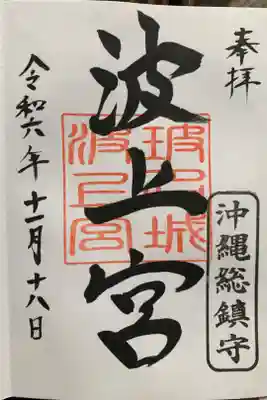 奉拝
沖縄総鎮守
波上宮
令和六年十一月十八日